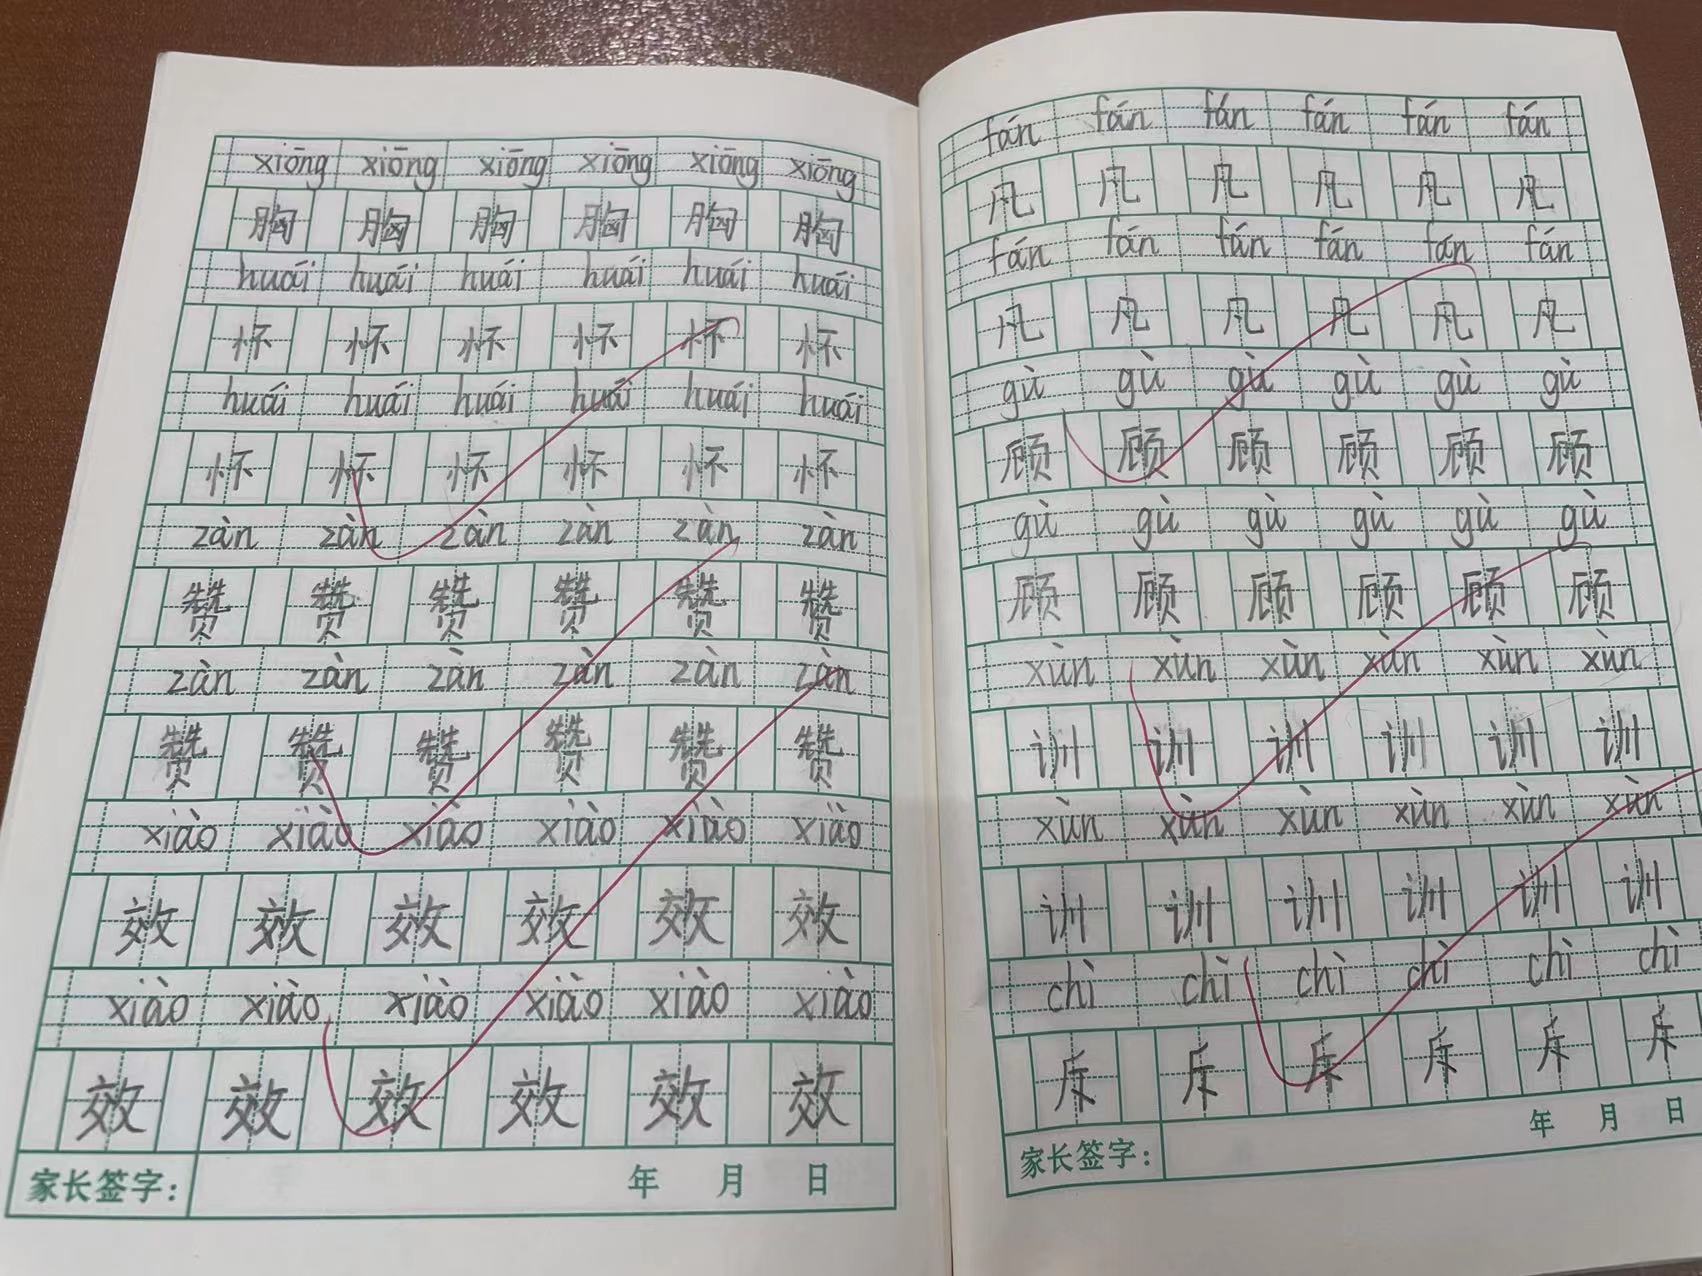 xiōng xiōng xiōng xiōng xiōng xiōng
胸 胸 胸 胸 胸 胸
huái huái huái huái huái huái
怀 怀 怀 怀 怀 怀
huái huái huái huái huái huái
怀 怀 怀 怀 怀 怀
zàn zàn zàn zàn zàn zàn
赞 赞 赞 赞 赞 赞
zàn zàn zàn zàn zàn zàn
赞 赞 赞 赞 赞 赞
xiào xiào xiào xiào xiào xiào
效 效 效 效 效 效
xiào xiào xiào xiào xiào xiào
效 效 效 效 效 效
家长签字: 年 月 日
fán fán fán fán fán fán
凡 凡 凡 凡 凡 凡
fán fán fán fán fán fán
凡 凡 凡 凡 凡 凡
gù gù gù gù gù gù
顾 顾 顾 顾 顾 顾
gù gù gù gù gù gù
顾 顾 顾 顾 顾 顾
xùn xùn xùn xùn xùn xùn
训 训 训 训 训 训
xùn xùn xùn xùn xùn xùn
训 训 训 训 训 训
chì chì chì chì chì chì
斥 斥 斥 斥 斥 斥
家长签字: 年 月 日